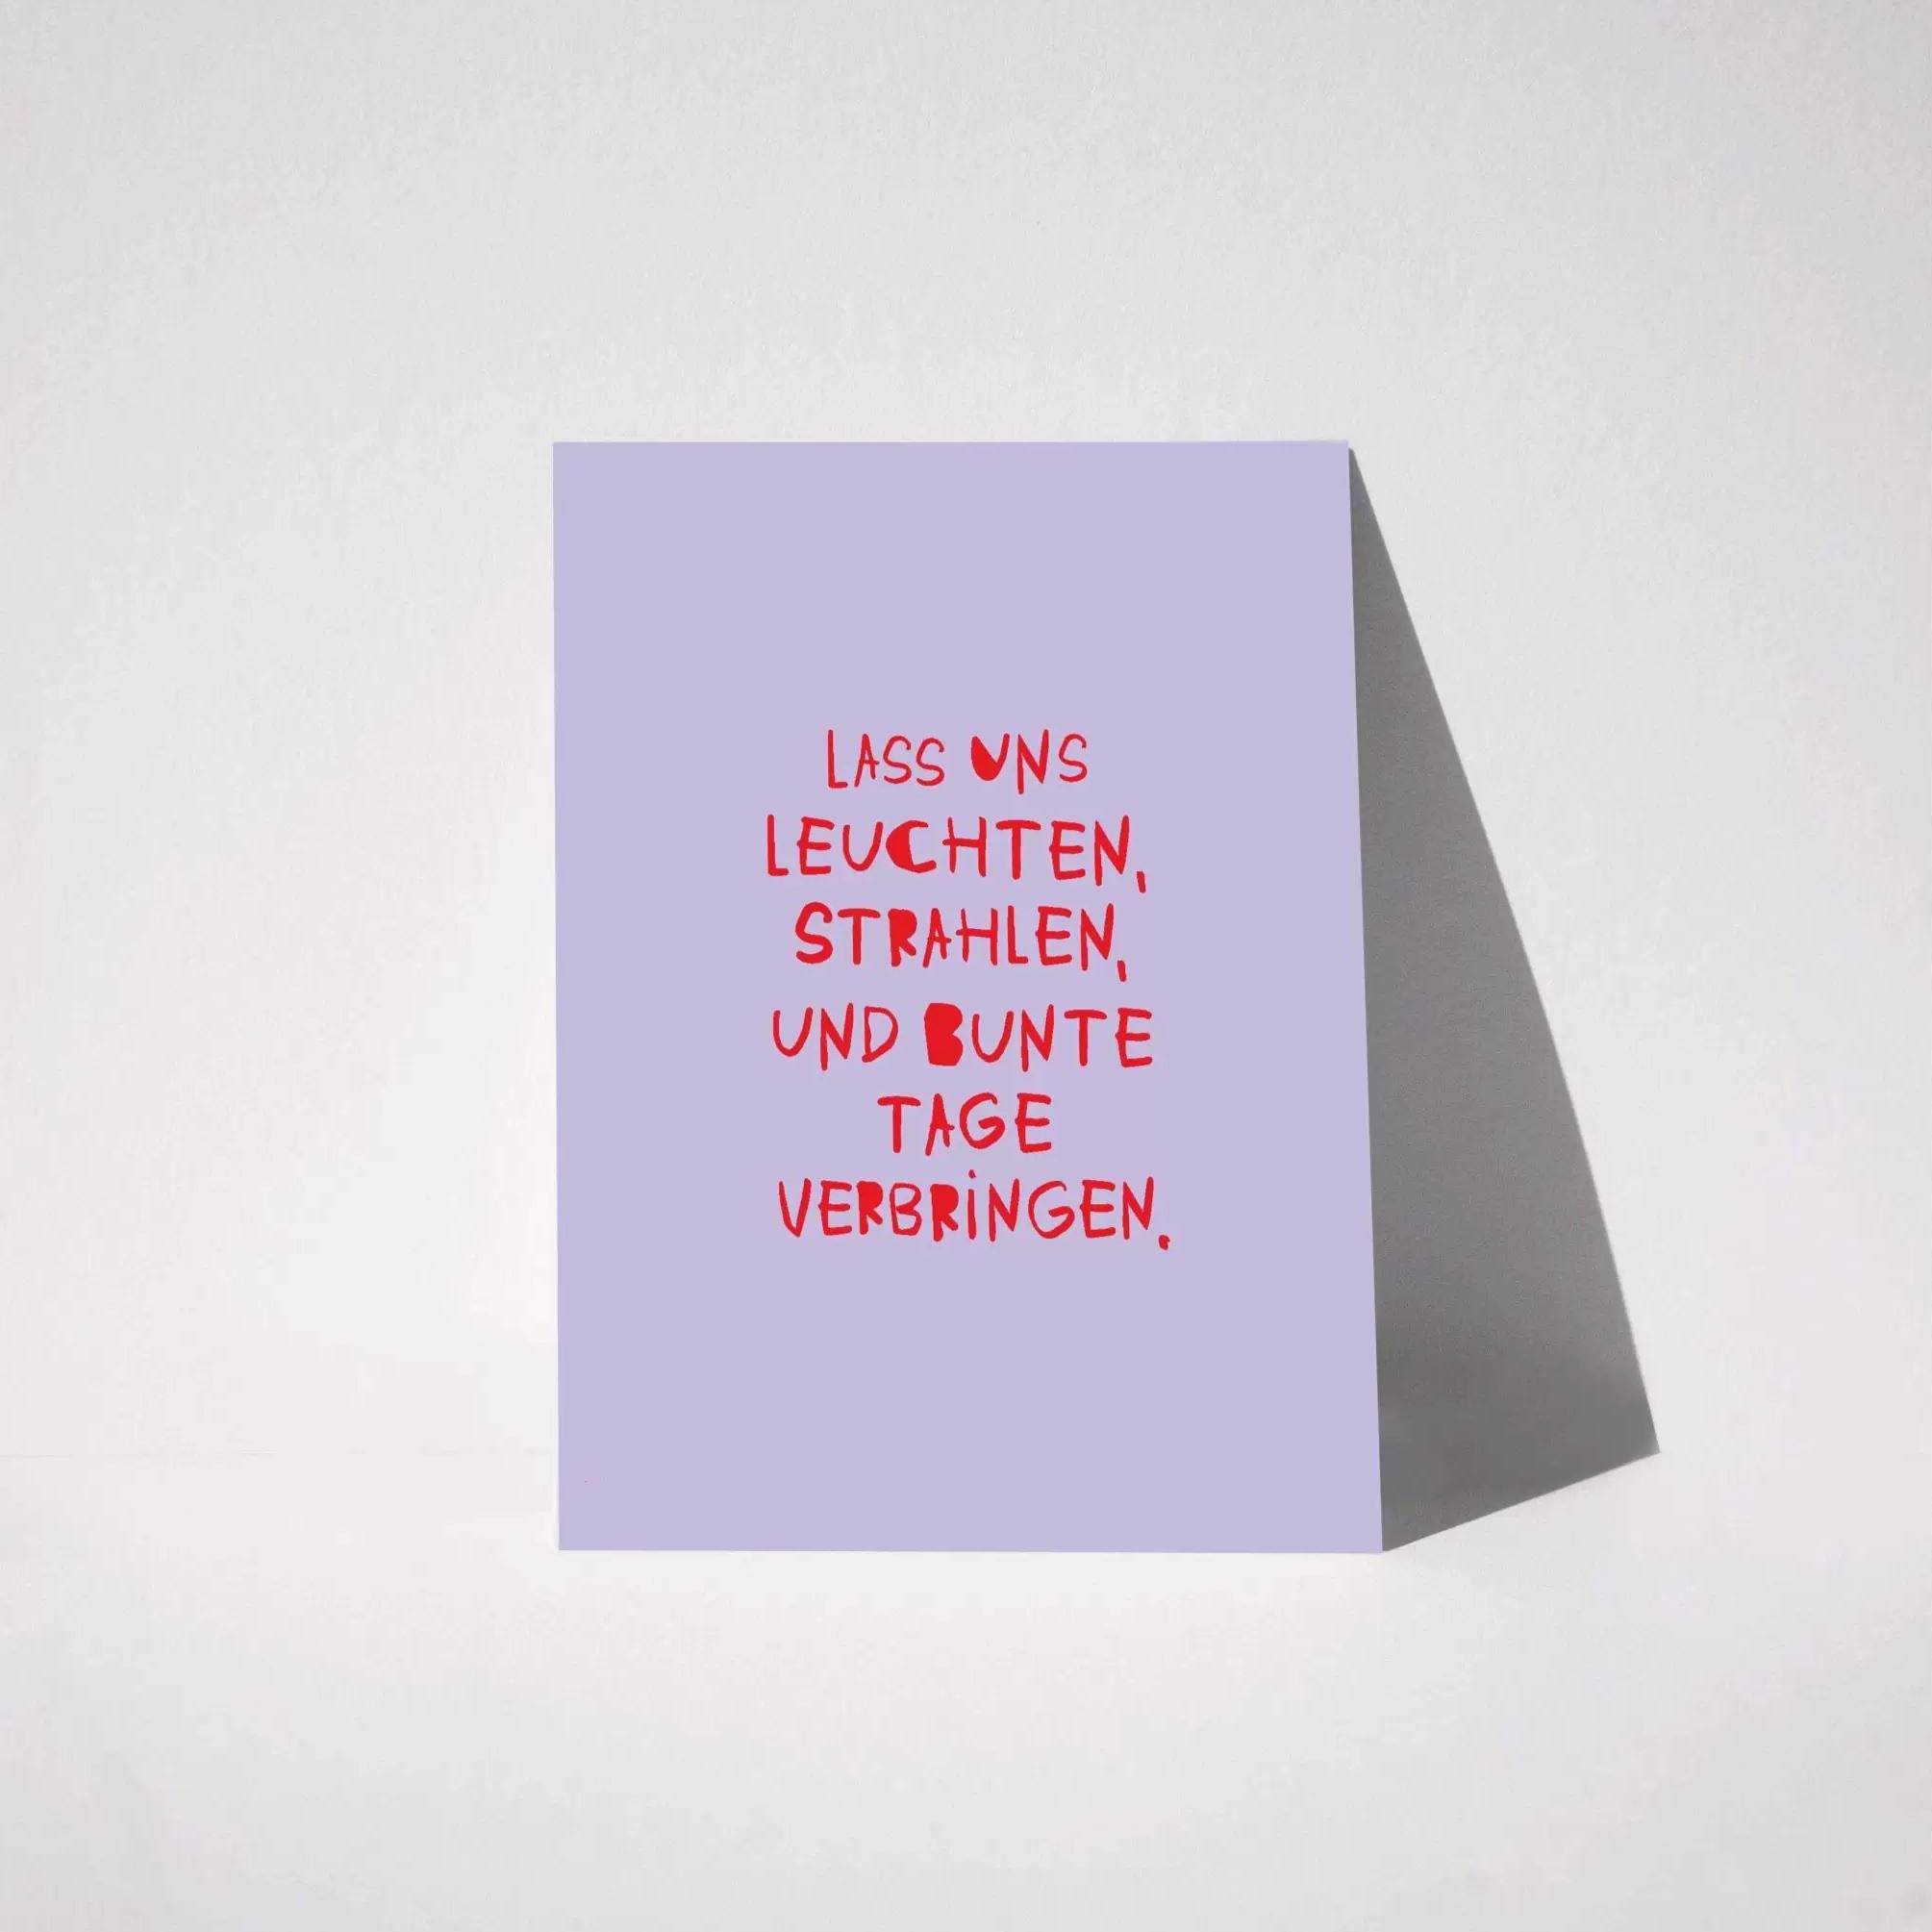 LASS UNS
LEUCHTEN,
STRAHLEN,
UND BUNTE
TAGE
VERBRINGEN.